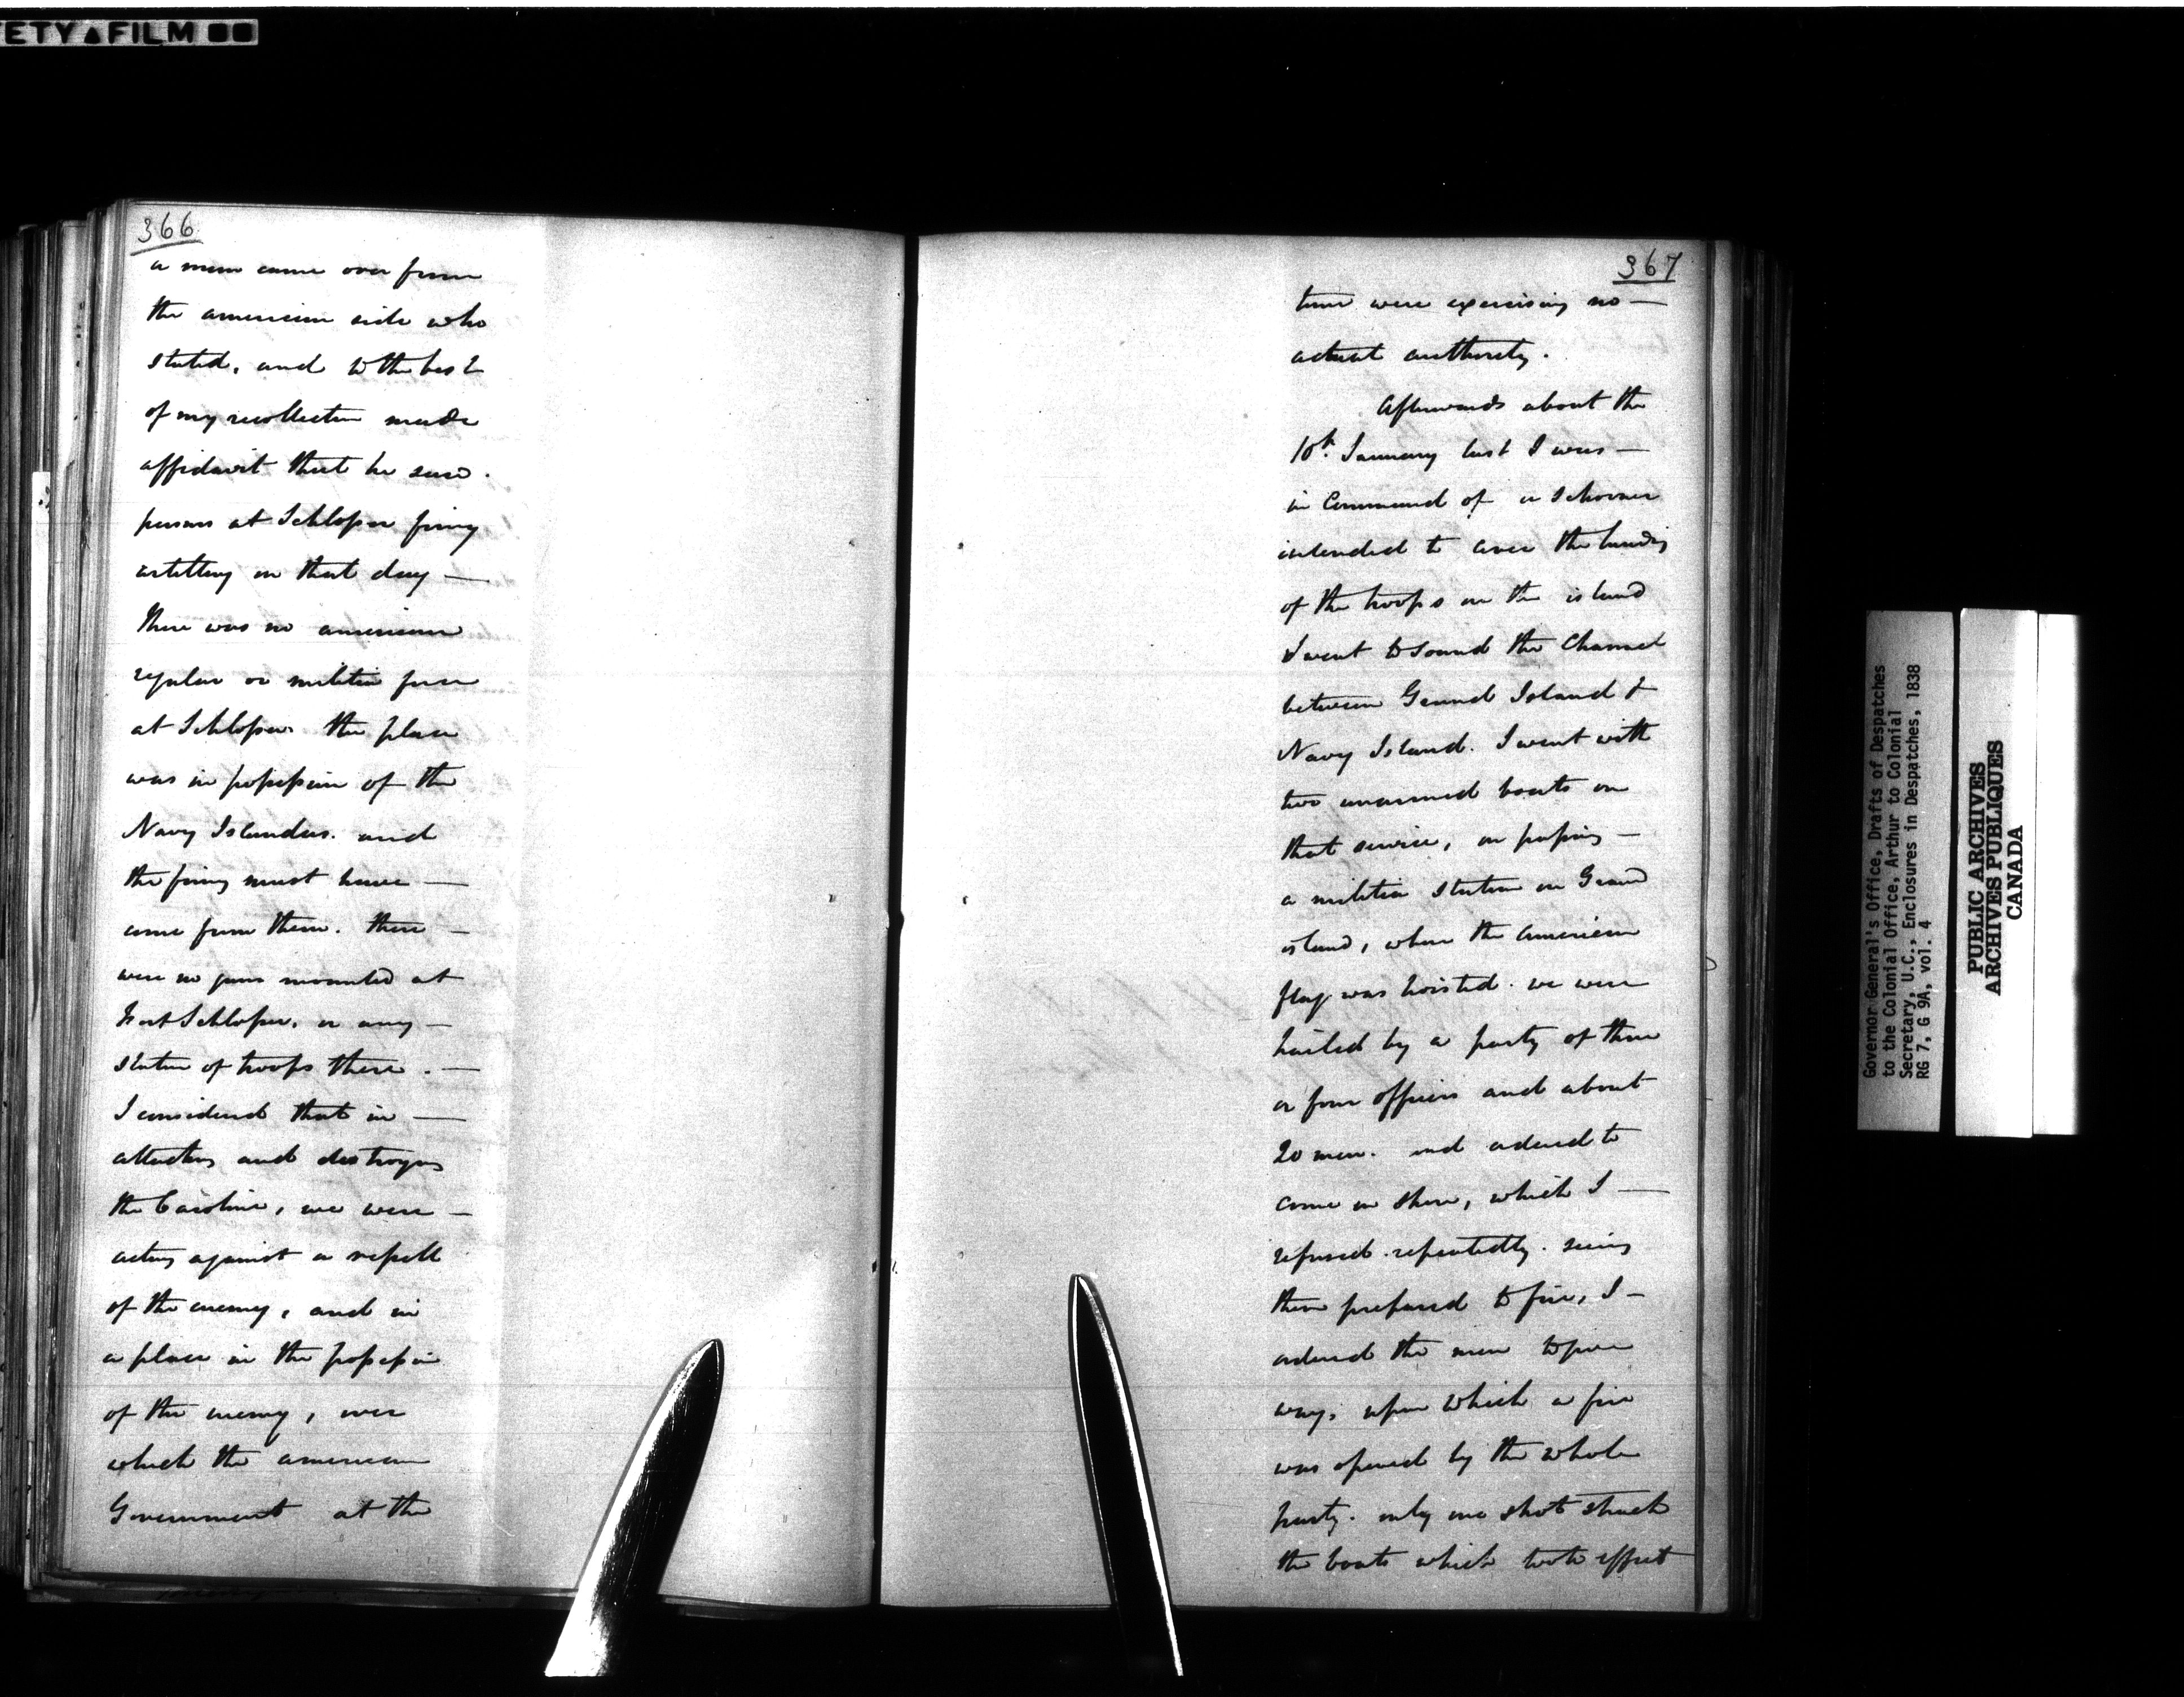 ETY▲FILM
366
a man came over from
the american side who
stated, and to the best
of my recollection made
affidavit that he saw
persons at Schlosser firing
artillery on that day —
there was no american
regular or militia force
at Schlosser the place
was in possession of the
Navy Islanders. and
the firing must have —
come from them. there —
were no guns mounted at
Fort Schlosser, or any —
station of troops there. —
I considered that in —
attacking and destroying
the Caroline, we were —
acting against a vessell
of the enemy, and in
a place in the possession
of the enemy, over
which the american
Government at the
367
time were exercising no —
actual authority.
Afterwards about the
10th. January last I was —
in Command of a Schooner
intended to cover the landing
of the troops on the island
I went to sound the Channel
between Grand Island &
Navy Island. I went with
two unarmed boats on
that service, on passing —
a militia station on Grand
island, where the american
flag was hoisted. we were
hailed by a party of three
or four officers and about
20 men. and ordered to
come on shore, which I —
refused repeatedly. seeing
them prepared to fire, I —
ordered the men to give
way, upon which a fire
was opened by the whole
party. only one shot struck
the boats which took effect
Governor General's Office, Drafts of Despatches
to the Colonial Office, Arthur to Colonial
Secretary, U.C., Enclosures in Despatches, 1838
RG 7, G 9A, vol. 4
PUBLIC ARCHIVES
ARCHIVES PUBLIQUES
CANADA